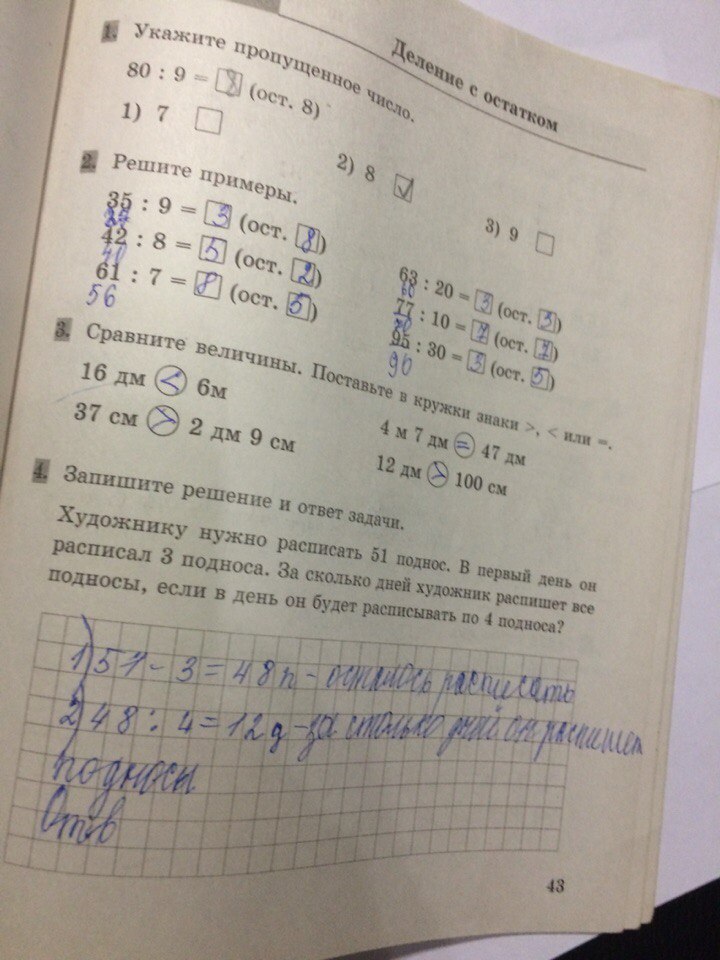 Деление с остатком
1. Укажите пропущенное число.
80 : 9 = 8 (ост. 8)
1) 7
2) 8 ✓
3) 9
2. Решите примеры.
35 : 9 = 3 (ост. 8)
27
42 : 8 = 5 (ост. 2)
40
61 : 7 = 8 (ост. 5)
56
63 : 20 = 3 (ост. 3)
60
77 : 10 = 7 (ост. 7)
70
95 : 30 = 3 (ост. 5)
90
3. Сравните величины. Поставьте в кружки знаки >, < или =.
16 дм < 6м
37 см > 2 дм 9 см
4 м 7 дм = 47 дм
12 дм > 100 см
4. Запишите решение и ответ задачи.
Художнику нужно расписать 51 поднос. В первый день он
расписал 3 подноса. За сколько дней художник распишет все
подносы, если в день он будет расписывать по 4 подноса?
1) 51 - 3 = 48 п - осталось расписать
2) 48 : 4 = 12 д - за столько дней он распишет
подносы
Отв
43